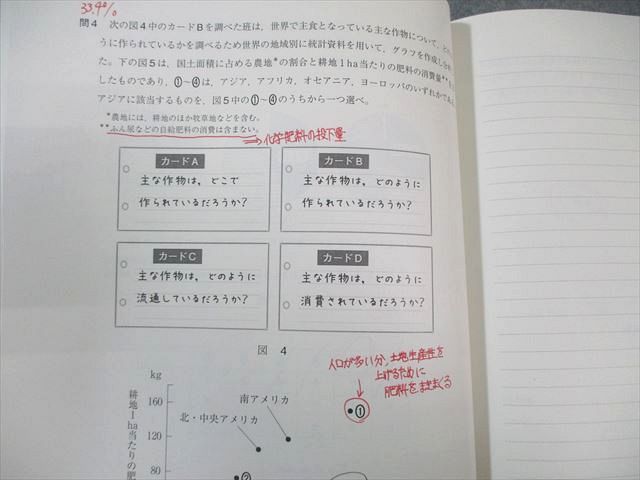 33.4%
問4 次の図4中のカードBを調べた班は，世界で主食となっている主な作物について，どの
うに作られているかを調べるため世界の地域別に統計資料を用いて，グラフを作成し分析
た。下の図5は，国土面積に占める農地*の割合と耕地1ha当たりの肥料の消費量**を
したものであり，①～④は，アジア，アフリカ，オセアニア，ヨーロッパのいずれかである
アジアに該当するものを，図5中の①～④のうちから一つ選べ。
*農地には，耕地のほか牧草地などを含む。
**ふん尿などの自給肥料の消費は含まない。
⇒化学肥料の投下量
カードA
主な作物は，どこで
作られているだろうか?
カードB
主な作物は，どのように
作られているだろうか?
カードC
主な作物は，どのように
流通しているだろうか?
カードD
主な作物は，どのように
消費されているだろうか?
図 4
人口が多い分，土地生産性を
上げるために
肥料をまきまくる
kg
160
120
80
耕地1ha当たりの肥
南アメリカ
北・中央アメリカ
①
②